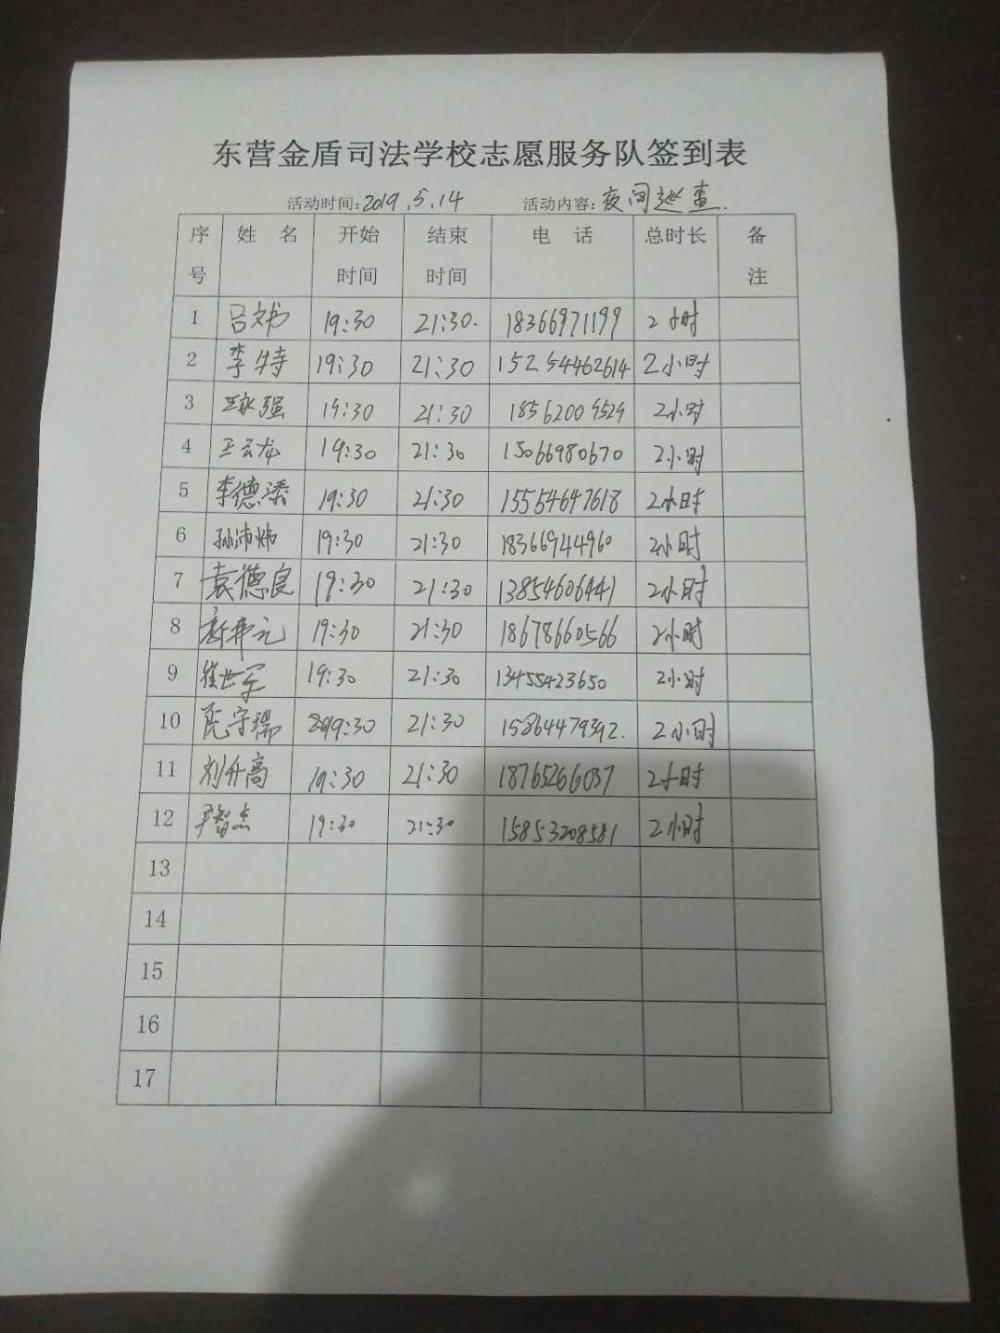 东营金盾司法学校志愿服务队签到表
活动时间:2019.5.14 活动内容:夜间巡查.
序号 姓 名 开始时间 结束时间 电 话 总时长 备注
1 吕文书 19:30 21:30. 18366971199 2小时
2 李特 19:30 21:30 15254462614 2小时
3 19:30 21:30 2小时
4 王云龙 19:30 21:30 15066980670 2小时
5 李德添 19:30 21:30 15554647618 2小时
6 孙沛炜 19:30 21:30 18366944960 2小时
7 袁德良 19:30 21:30 13854606441 2小时
8 19:30 21:30 18678660566 2小时
9 崔世军 19:30 21:30 13455423650 2小时
10 19:30 21:30 2小时
11 刘升高 19:30 21:30 18765266037 2小时
12 尹智杰 19:30 21:30 15853208581 2小时
13
14
15
16
17